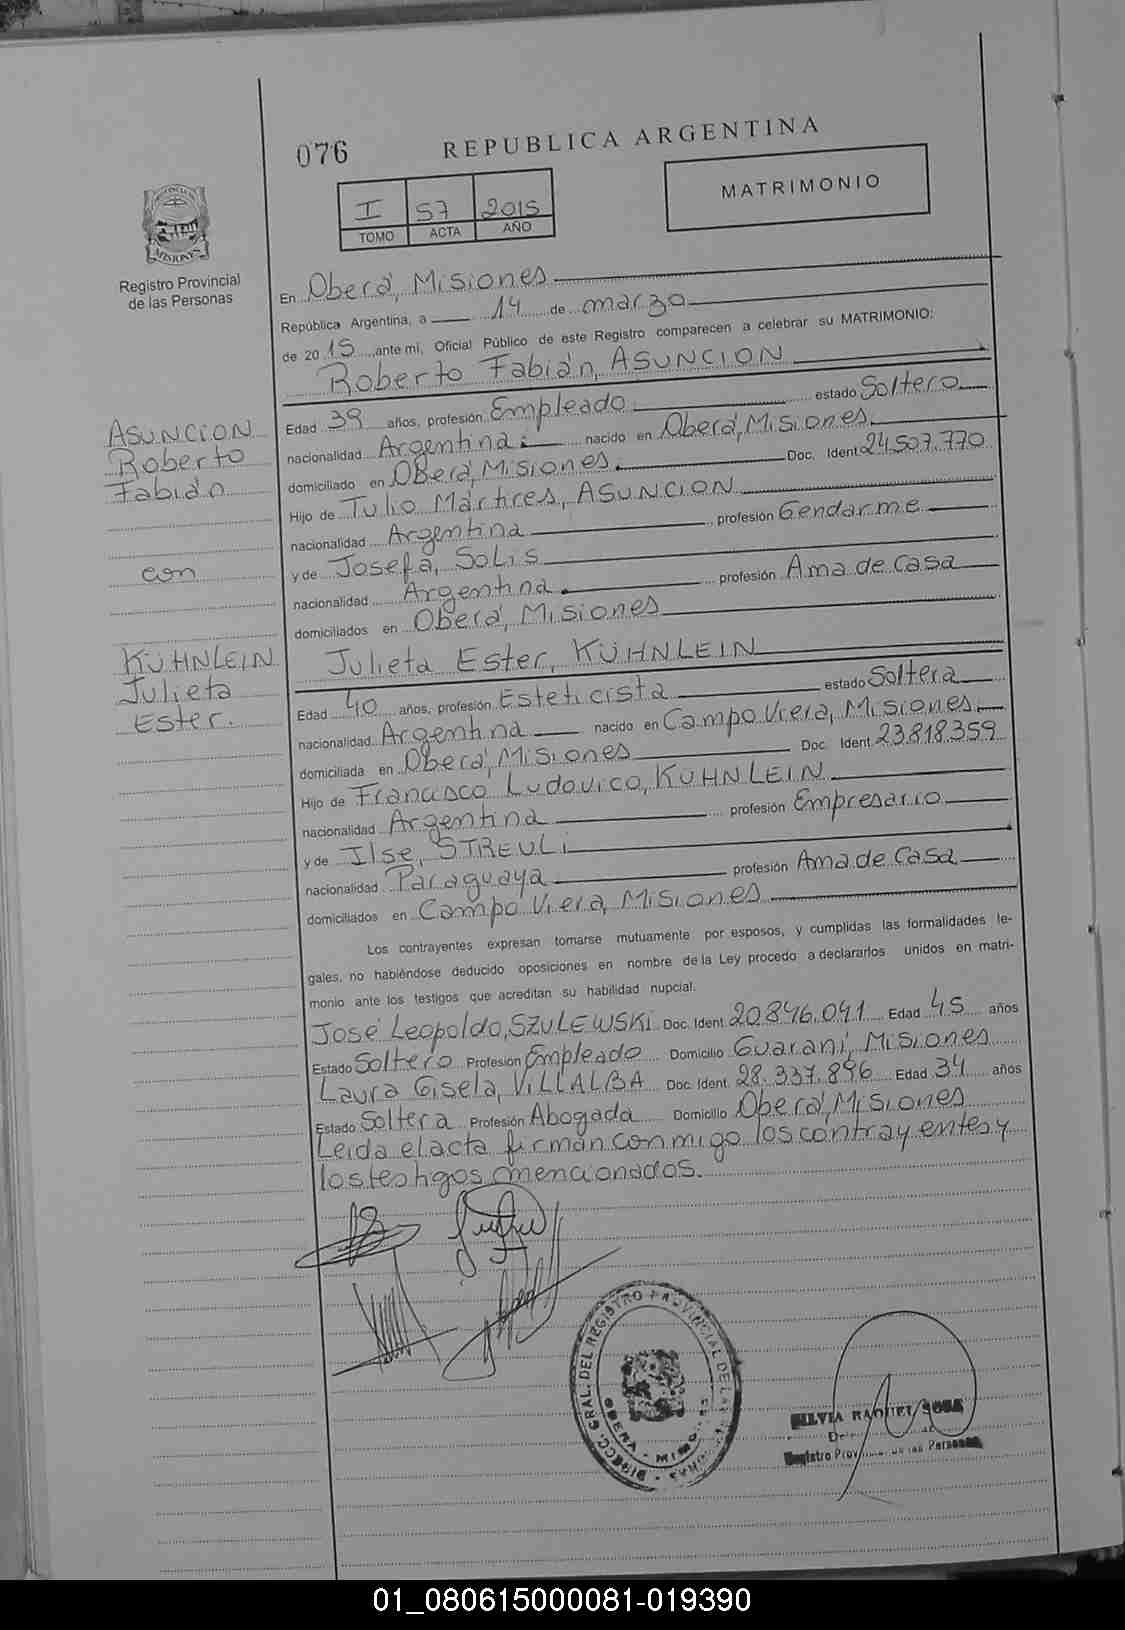 076 REPUBLICA ARGENTINA
MATRIMONIO
I 57 2015
TOMO ACTA AÑO
PROVINCIA DE
MISIONES
Registro Provincial
de las Personas
En Oberá, Misiones
República Argentina, a 14 de marzo
de 2015, ante mi, Oficial Público de este Registro comparecen a celebrar su MATRIMONIO:
Roberto Fabián, ASUNCION
ASUNCION
Roberto
Fabián
con
KÜHNLEIN
Julieta
Ester.
Edad 39 años, profesión Empleado estado Soltero
nacionalidad Argentina. nacido en Oberá, Misiones
domiciliado en Oberá, Misiones. Doc. Ident 24.507.770
Hijo de Tulio Mártires, ASUNCION
nacionalidad Argentina profesión Gendarme
y de Josefa, SOLIS
nacionalidad Argentina. profesión Ama de Casa
domiciliados en Oberá, Misiones
Julieta Ester, KÜHNLEIN
Edad 40 años, profesión Esteticista estado Soltera
nacionalidad Argentina nacido en Campo Viera, Misiones
domiciliada en Oberá, Misiones Doc. Ident. 23.818.359
Hijo de Francisco Ludovico, KÜHNLEIN
nacionalidad Argentina profesión Empresario
y de Ilse, STREULi
nacionalidad Paraguaya profesión Ama de Casa
domiciliados en Campo Viera, Misiones
Los contrayentes expresan tomarse mutuamente por esposos, y cumplidas las formalidades le-
gales, no habiéndose deducido oposiciones en nombre de la Ley procedo a declararlos unidos en matri-
monio ante los testigos que acreditan su habilidad nupcial.
José Leopoldo, SZULEWSKi Doc. Ident. 20.846.041 Edad 45 años
Estado Soltero Profesión Empleado Domicilio Guaraní, Misiones
Laura Gisela, ViLLALBA Doc. Ident. 28.337.896 Edad 34 años
Estado Soltera Profesión Abogada Domicilio Oberá, Misiones
Leida el acta firman conmigo los contrayentes y
los testigos mencionados.
DIRECC. GRAL. DEL REGISTRO PROVINCIAL DE LAS
OBERA - MISIONES
SILVIA RAQUEL SOSA
Registro Personas
01_080615000081-019390